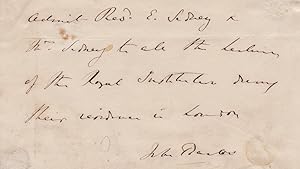 Admit Revd. E. Sidney &
Mrs. Sidney to all the Lectures
of the Royal Institution during
their residence in London
John Barlow